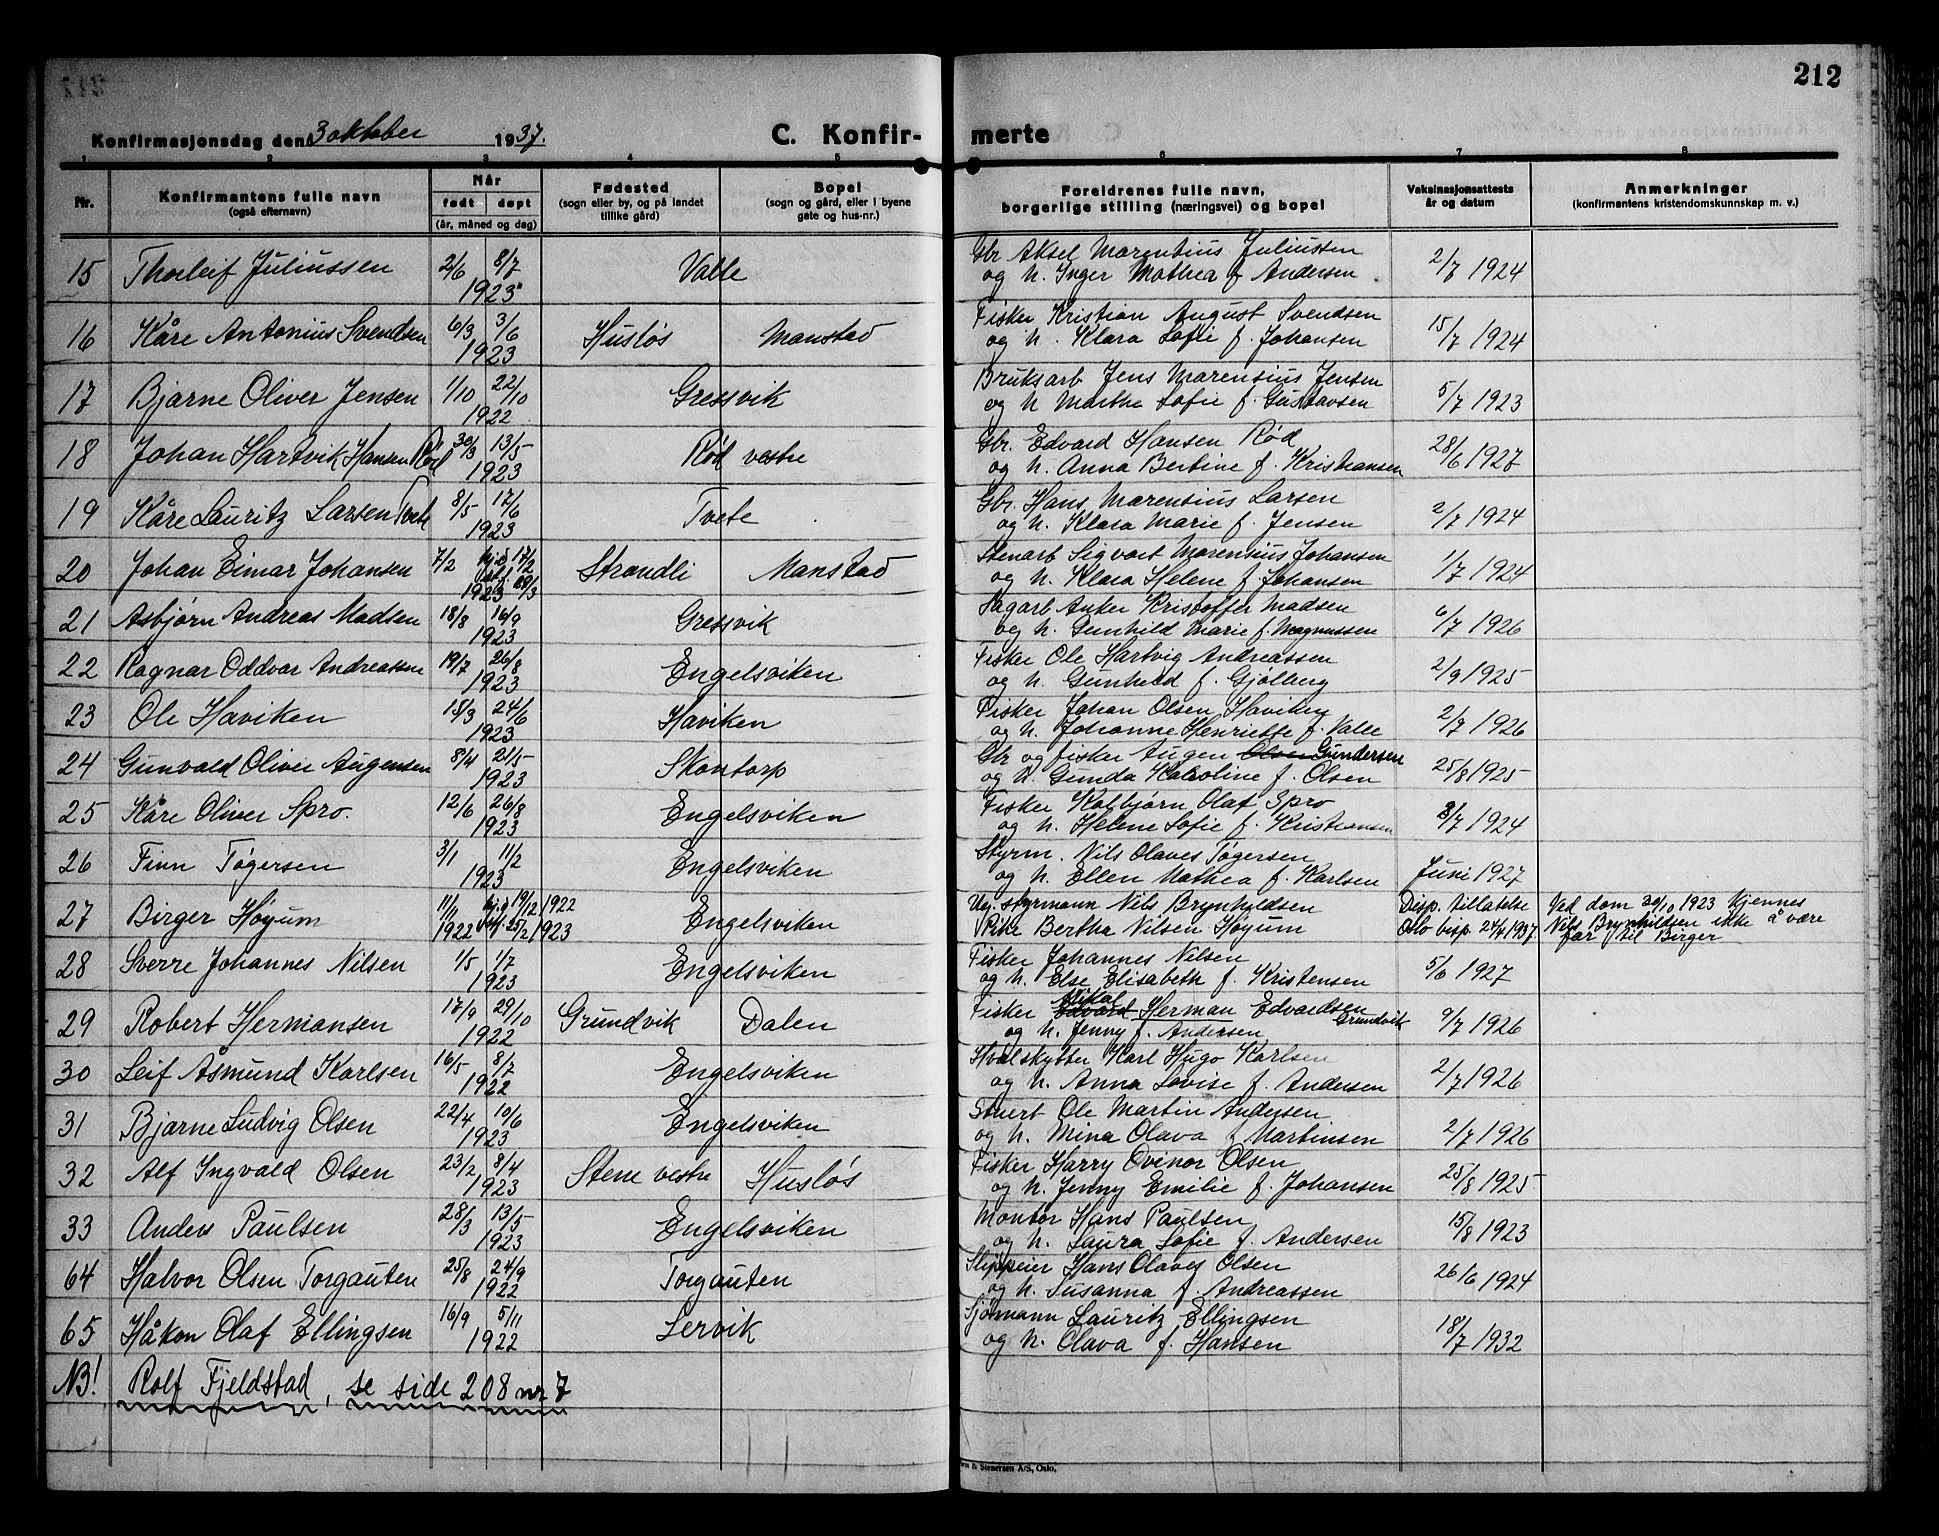 212
Konfirmasjonsdag den 3 oktober 1937. C. Konfir- merte
1 2 3 4 5 6 7 8
Nr. Konfirmantens fulle navn (også efternavn) Når født døpt (år, måned og dag) Fødested (sogn eller by, og på landet tillike gård) Bopel (sogn og gård, eller i byene gate og hus-nr.) Foreldrenes fulle navn, borgerlige stilling (næringsvei) og bopel Vaksinasjonsattests år og datum Anmerkninger (konfirmantens kristendomskunnskap m. v.)
15 Thorleif Juliussen 2/6 8/7 1923 Valle Gbr Aksel Marentius Juliussen
og h. Inger Mathea f Andersen. 2/7 1924
16 Kåre Antonius Svendsen 6/3 3/6 1923 Husløs Manstad Fisker Kristian August Svendsen
og h. Klara Sofie f. Johansen 15/7 1924
17 Bjarne Oliver Jensen 1/10 22/10 1922 Gressvik Bruksarb Jens Marensius Jensen
og h Marthe Sofie f. Gustavsen 5/7 1923
18 Johan Hartvik Hansen Rød 30/3 13/5 1923 Rød vestre Gbr. Edvard Hansen Rød
og h. Anna Bertine f. Kristiansen 28/6 1927
19 Kåre Lauritz Larsen Tvete 8/5 17/6 1923 Tvete Gbr. Hans Marensius Larsen
og h. Klara Marie f. Jensen 2/7 1924
20 Johan Eimar Johansen 7/2 hj.d. 17/2 1923 /3 Strandli Manstad Stenarb Sigvart Marensius Johansen
og h. Klara Helene f. Johansen 1/7 1924
21 Asbjørn Andreas Madsen 18/8 16/9 1923 Gressvik Sagarb Anker Kristoffer Madsen
og h. Gemhild Marie f. Magnussen 6/7 1926
22 Ragnar Oddvar Andreassen 19/7 26/8 1923 Engelsviken Fisker Ole Hartvig Andreassen
og h. Gunhild f. Gjølberg 2/9 1925
23 Ole Haviken 15/3 24/6 1923 Haviken Fisker Johan Olsen Haviken
og h. Johanne Henriette f. Valle 2/7 1926
24 Gunvald Oliver Augensen 8/4 21/5 1923 Skontorp Gbr og fisker Augen Olsen Gundersen
og h. Gunda Karoline f. Olsen 25/8 1925
25 Kåre Oliver Spro. 12/6 26/8 1923 Engelsviken Fisker Kolbjørn Olaf Spro
og h. Helene Sofie f. Kristiansen 8/7 1924
26 Finn Tøgersen 3/1 11/2 1923 Engelsviken Styrm. Nils Olaves Tøgersen
og h. Ellen Mathea f. Karlsen Juni 1927
27 Birger Høyum 11/11 1922 hj.d 19/12 1922 25/2 1923 Engelsviken Ug. styrmann Nils Brynhildsen
Pike Bertha Nilsen Høyum Disp. tillatelse
Oslo bisp. 24/4 1937. Ved dom 30/10 1923 kjennes
Nils Brynhildsen ikke å være
far til Birger
28 Sverre Johannes Nilsen 1/5 1/7 1923 Engelsviken Fisker Johannes Nilsen
og h. Else Elisabeth f. Kristensen 5/6 1927
29 Robert Hermansen 17/9 29/10 1922 Grundvik Dalen Fisker Edvard Mikal Herman Edvardsen Grundvik
og h. Jenny f. Andersen 9/7 1926
30 Leif Åsmund Karlsen 16/5 8/7 1922 Engelsviken Hvalskytter Karl Hugo Karlsen
og h. Anna Lovise f. Andersen 2/7 1926
31 Bjarne Ludvig Olsen 22/4 10/6 1923 Engelsviken Stuert Ole Martin Andersen
og h. Mina Olava f Martinsen 2/7 1926
32 Alf Ingvald Olsen 23/2 8/4 1923 Stene vestre Husløs Fisker Harry Ovinor Olsen
og h. Jenny Emilie f. Johansen 25/8 1925
33 Anders Paulsen 28/3 13/5 1923 Engelsviken Montør Hans Paulsen
og h. Laura Sofie f. Andersen 15/8 1923
64 Halvor Olsen Torgauten 25/8 24/9 1922 Torgauten Slippeier Hans Olaves Olsen
og h. Susanna f Andreassen 26/6 1924
65 Håkon Olaf Ellingsen 16/9 5/11 1922 Lervik Sjømann Lauritz Ellingsen
og h. Olava f. Hansen 18/7 1932
NB! Rolf Fjeldstad, se side 208 nr 7
& Stenersen A/S, Oslo.